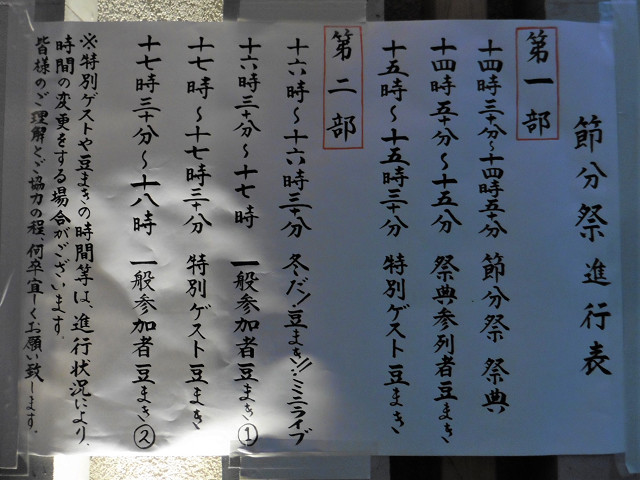 節分祭進行表
第一部
十四時三十分〜十四時五十分 節分祭 祭典
十四時五十分〜十五分 祭典参列者豆まき
十五時〜十五時三十分 特別ゲスト豆まき
第二部
十六時〜十六時三十分 冬だ!豆まき!!ミニライブ
十六時三十分〜十七時 一般参加者豆まき①
十七時〜十七時三十分 特別ゲスト豆まき
十七時三十分〜十八時 一般参加者豆まき②
※特別ゲストや豆まきの時間等は、進行状況により、
時間の変更をする場合がございます。
皆様のご理解とご協力の程、何卒宜しくお願い致します。